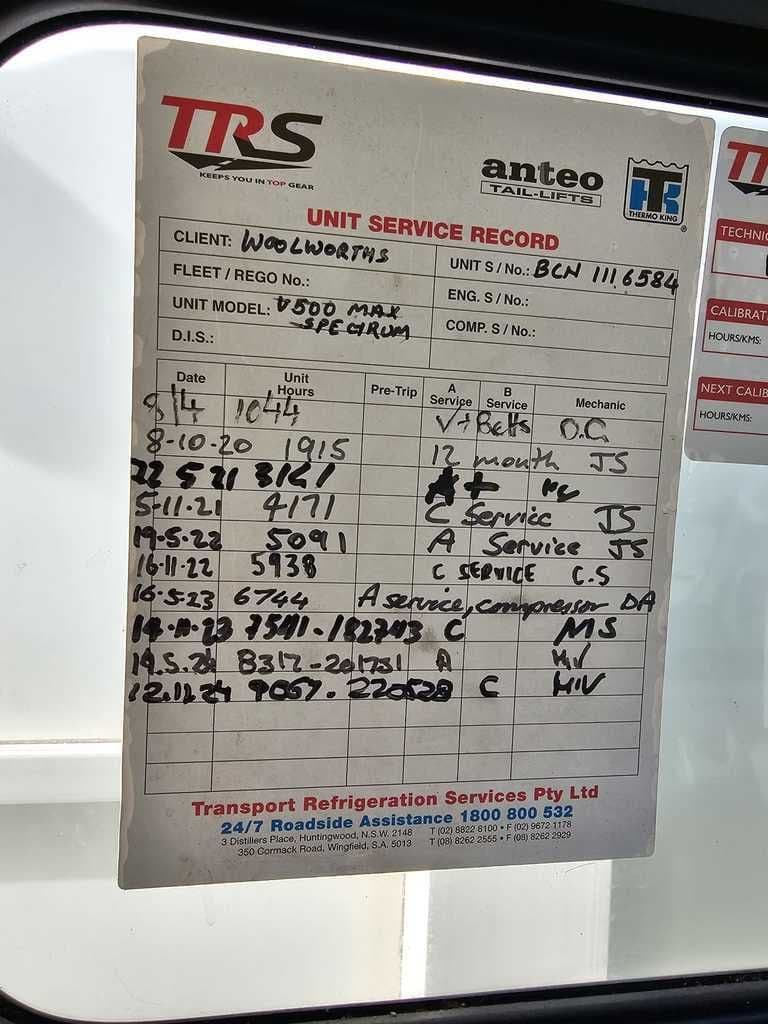 TRS
KEEPS YOU IN TOP GEAR
anteo
TAIL-LIFTS
THERMO KING
®
UNIT SERVICE RECORD
CLIENT: WOOLWORTHS
UNIT S / No.: BCN 1116584
FLEET / REGO No.:
ENG. S / No.:
UNIT MODEL: V500 MAX
SPECTRUM
COMP. S / No.:
D.I.S.:
Date Unit Hours Pre-Trip A Service B Service Mechanic
8/4 1044 V+Belts O.C.
8-10-20 1915 12 month JS
22 5 21 3141 A+
5-11-21 4171 C Service JS
19-5-22 5091 A Service JS
16-11-22 5938 C SERVICE C.S
16-5-23 6744 A service, compressor DA
14-11-23 7541-182743 C MS
14.5.24 8317-201731 A MV
12.11.24 9067. 220528 C MV
Transport Refrigeration Services Pty Ltd
24/7 Roadside Assistance 1800 800 532
3 Distillers Place, Huntingwood, N.S.W. 2148 T (02) 8822 8100 • F (02) 9672 1178
350 Cormack Road, Wingfield, S.A. 5013 T (08) 8262 2555 • F (08) 8262 2929
HOURS/KMS:
NEXT CALIB
HOURS/KMS: